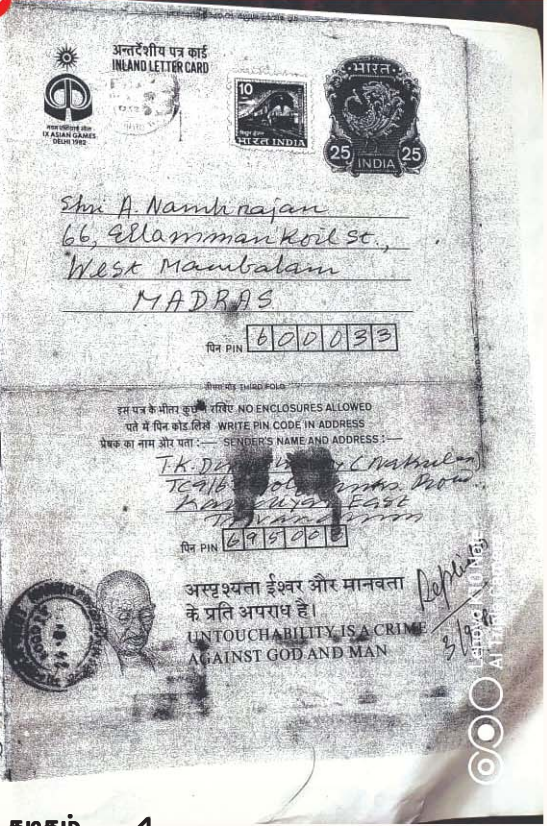 अन्तर्देशीय पत्र कार्ड
INLAND LETTER CARD
नवम एशियाई खेल
IX ASIAN GAMES
DELHI 1982
10
भारत INDIA
भारत
25 25
INDIA
Shri A. Nambirajan
66, Ellamman Koil St.,
West Mambalam
MADRAS
पिन PIN 600033
तीसरा मोड़ THIRD FOLD
इस पत्र के भीतर कुछ न रखिए NO ENCLOSURES ALLOWED
पते में पिन कोड लिखें WRITE PIN CODE IN ADDRESS
प्रेषक का नाम और पता :— SENDER'S NAME AND ADDRESS :—
T.K. (Nakulan)
East
Trivandrum
पिन PIN 69500
अस्पृश्यता ईश्वर और मानवता
के प्रति अपराध है।
UNTOUCHABILITY IS A CRIME
AGAINST GOD AND MAN
Replied
3/9